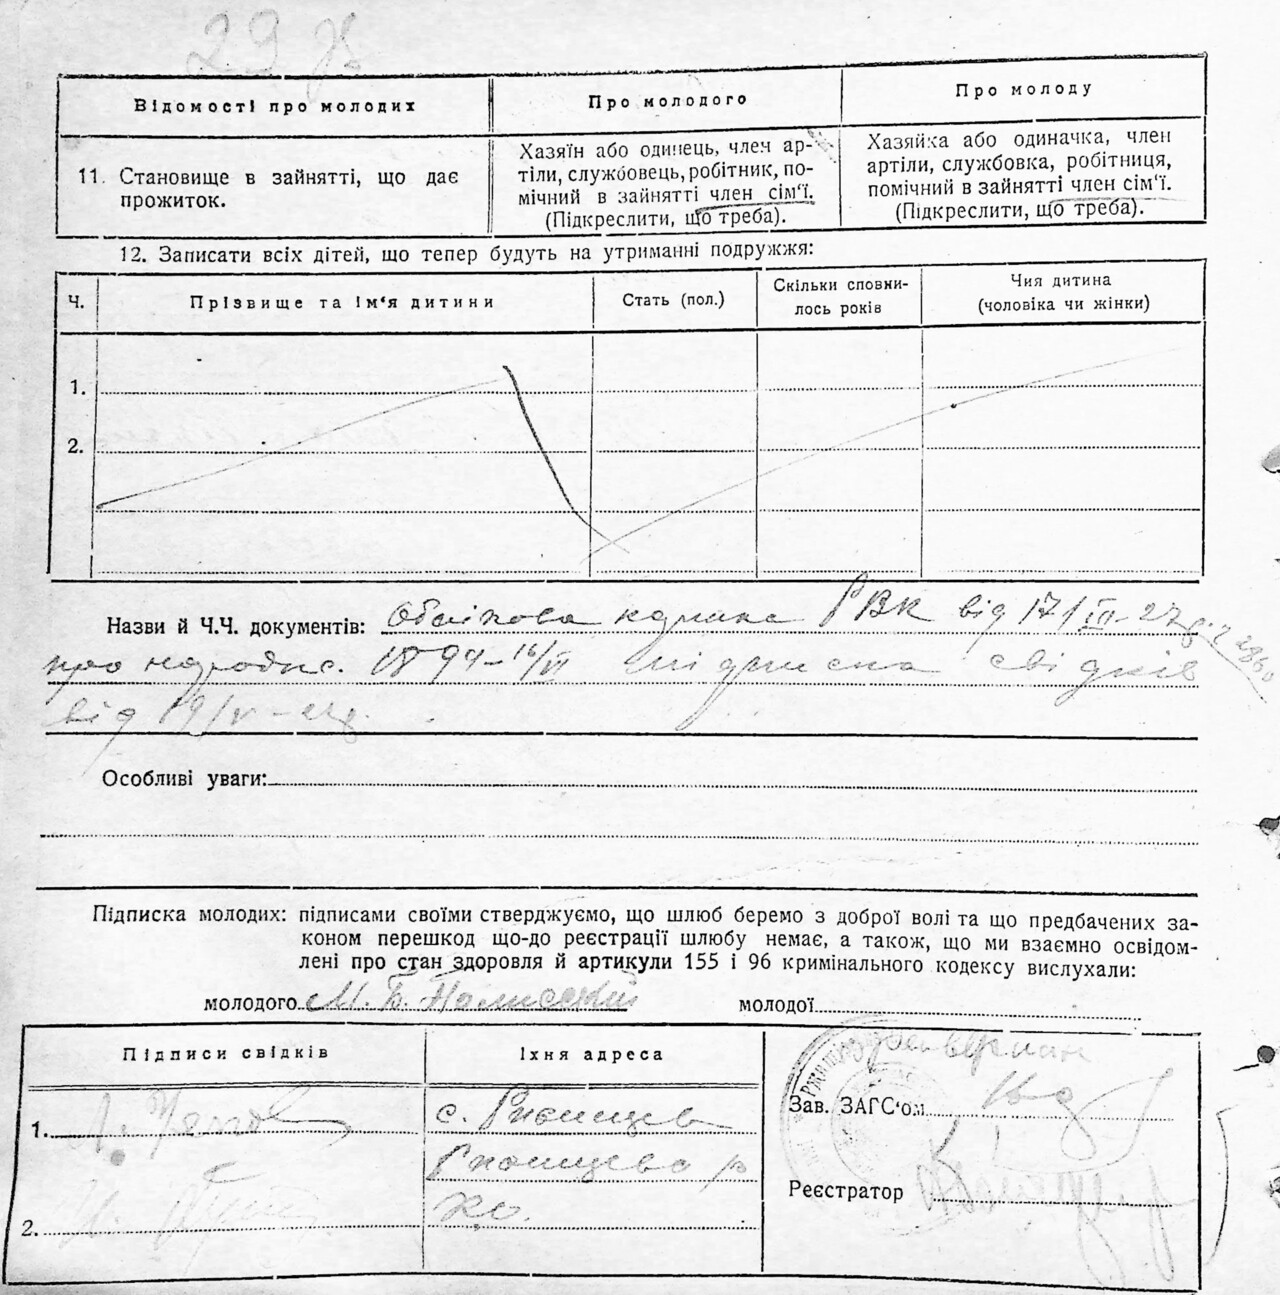 29
Відомості про молодих
Про молодого
Про молоду
11. Становище в зайнятті, що дає
прожиток.
Хазяїн або одинець, член ар-
тілі, службовець, робітник, по-
мічний в зайнятті член сім'ї.
(Підкреслити, що треба).
Хазяйка або одиначка, член
артілі, службовка, робітниця,
помічний в зайнятті член сім'ї.
(Підкреслити, що треба).
12. Записати всіх дітей, що тепер будуть на утриманні подружжя:
Ч.
Прізвище та ім'я дитини
Стать (пол.)
Скільки сповни-
лось років
Чия дитина
(чоловіка чи жінки)
1.
2.
Назви й Ч.Ч. документів: Облікова картка РВК від 17/III-27р.
про народж. 1894-16/VI підписка свідків
від 19/V
Особливі уваги:
Підписка молодих: підписами своїми стверджуємо, що шлюб беремо з доброї волі та що предбачених за-
коном перешкод що-до реєстрації шлюбу немає, а також, що ми взаємно освідом-
лені про стан здоровля й артикули 155 і 96 кримінального кодексу вислухали:
молодого М. Б. молодої
Підписи свідків
Їхня адреса
1.
с. Ржищев
Ржищево р
2.
Зав. ЗАГС'ом
Реєстратор